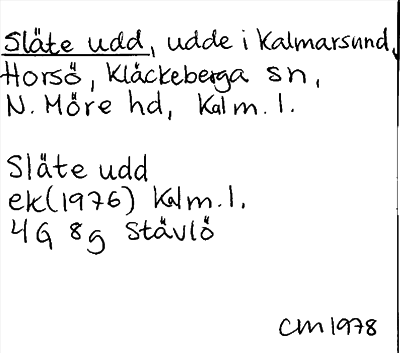 Släte udd, udde i Kalmarsund,
Horsö, Kläckeberga sn,
N. Möre hd, Kalm. l.
Släte udd
ek(1976) Kalm. l.
4G 8g Stävlö
CM 1978